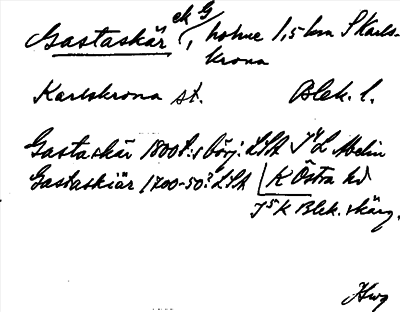 Gastaskär, holme 1,5 km S Karls-
krona
Karlskrona st. Blek. l.
Gastaskär 1800t:s börj: LSA
Gastaskiär 1700-50? LSA K Östra hd
J5K Blek. skärg.
Hwg